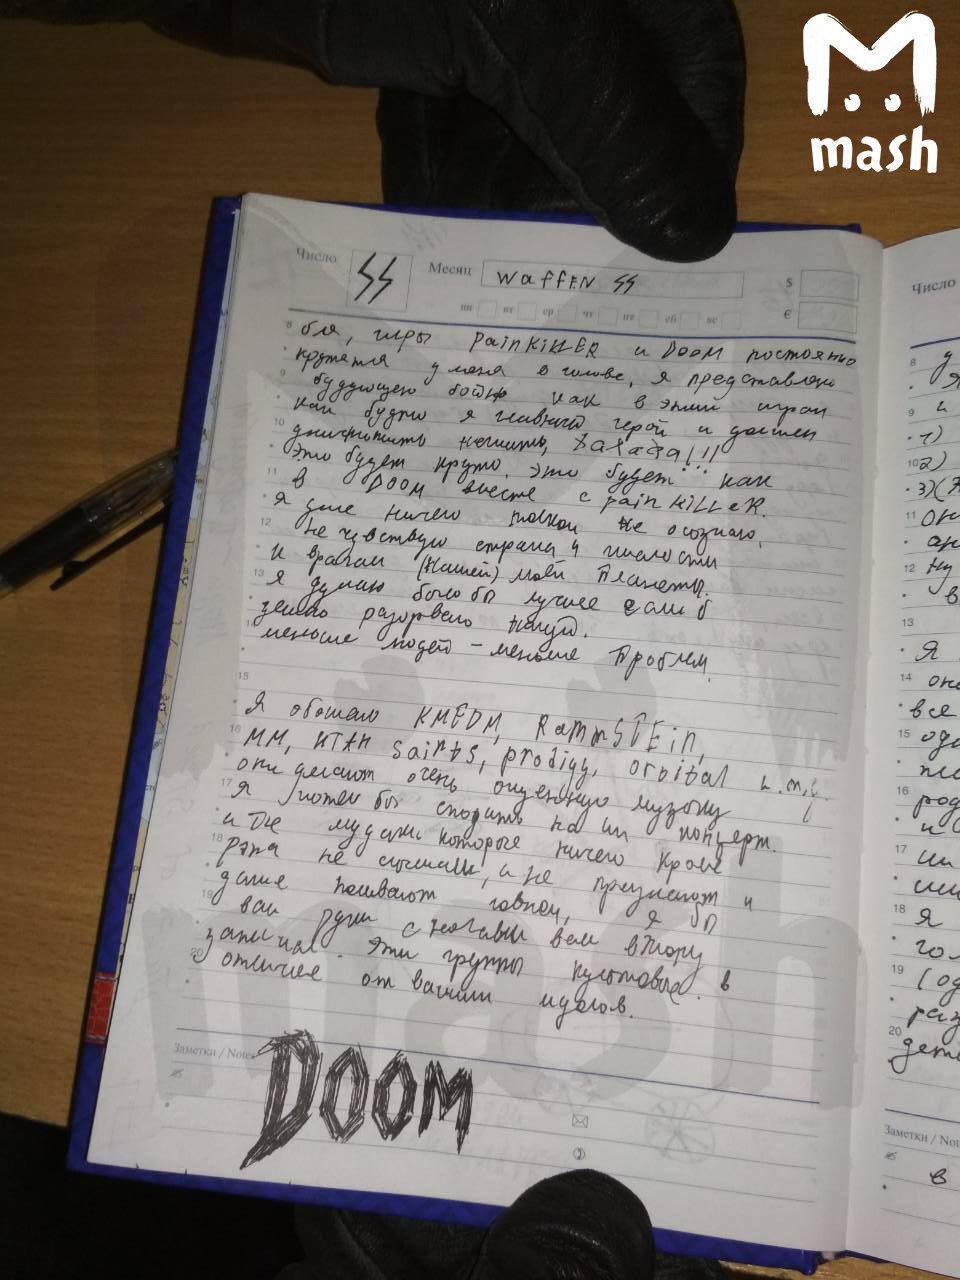 mash
Число
SS
Месяц
Waffen SS
$
€
пн вт ср чт пт сб вс
бля, игры PainKiLLER и DOOM постоянно
крутятся у меня в голове, я представляю
бойню как в этих играх
как будто я главный герой и должен
нечисть, Хахаха!!!
это будет круто, это будет как
в DOOM вместе с pain KiLLeR.
я уже ничего не осознаю,
не чувствую страха и жалости
к врагам (нашей) моей планеты.
я думаю было бы лучше если б
землю разорвало нахуй.
меньше людей - меньше проблем.
Я обожаю KMFDM, RammSTEin,
MM, saints, prodigy, orbital и.т.д.
они делают очень музыку
я хотел бы сходить на их концерт.
а те мудаки которые ничего кроме
рэпа не слышали, и не признают и
даже называют говном, я бы
вам руки с ногами всем
Эти группы культовые. в
отличие от ваших идолов.
Заметки / Notes
DOOM
Число
8
9
10
11
12
13
14
15
16
17
18
19
20
у
я
и
1)
2)
он
ну
в
Я
все
род
и
Я
(од
дет
Заметки / Not
в